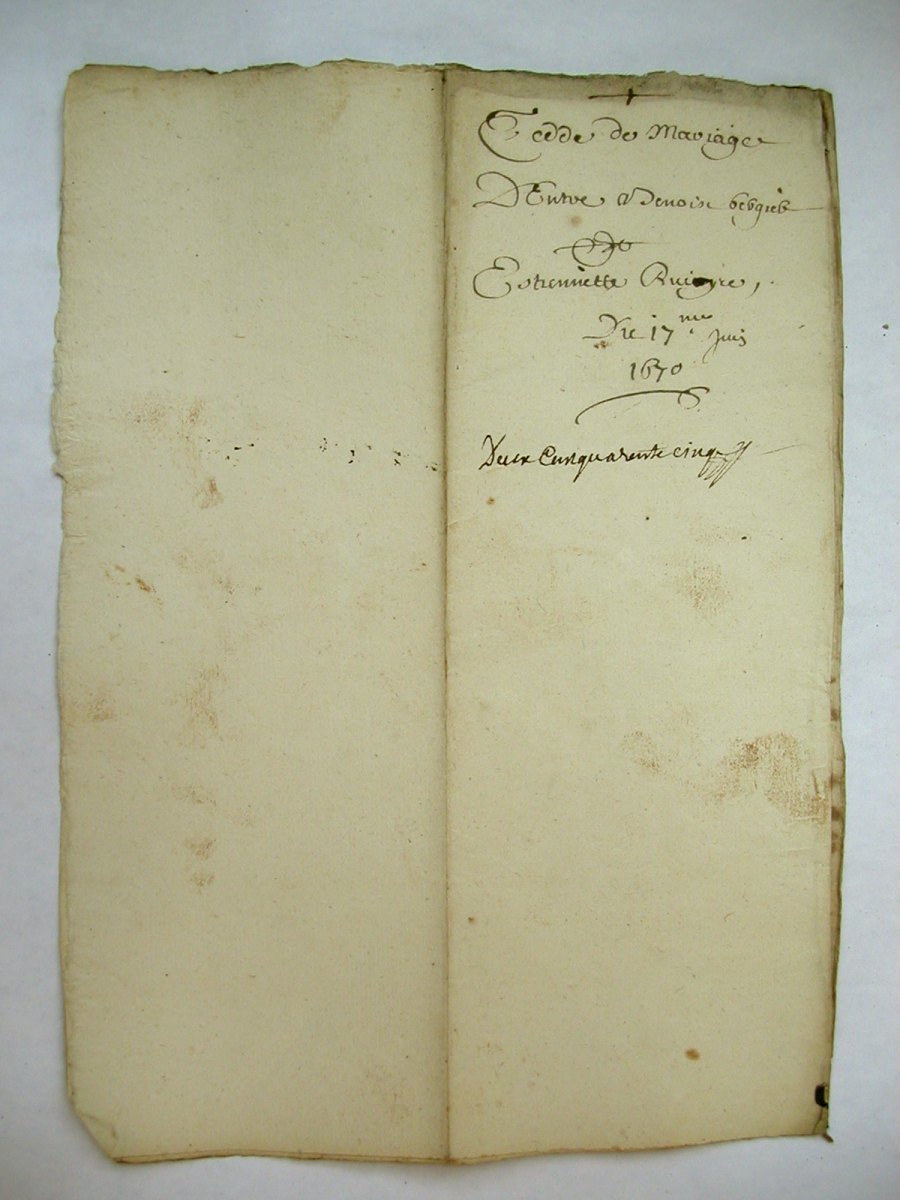 Cedde de Mariage
D'Entre Benoist
Et
Estiennette
Du 17me Juin
1670
Deux Cens quarente cinq